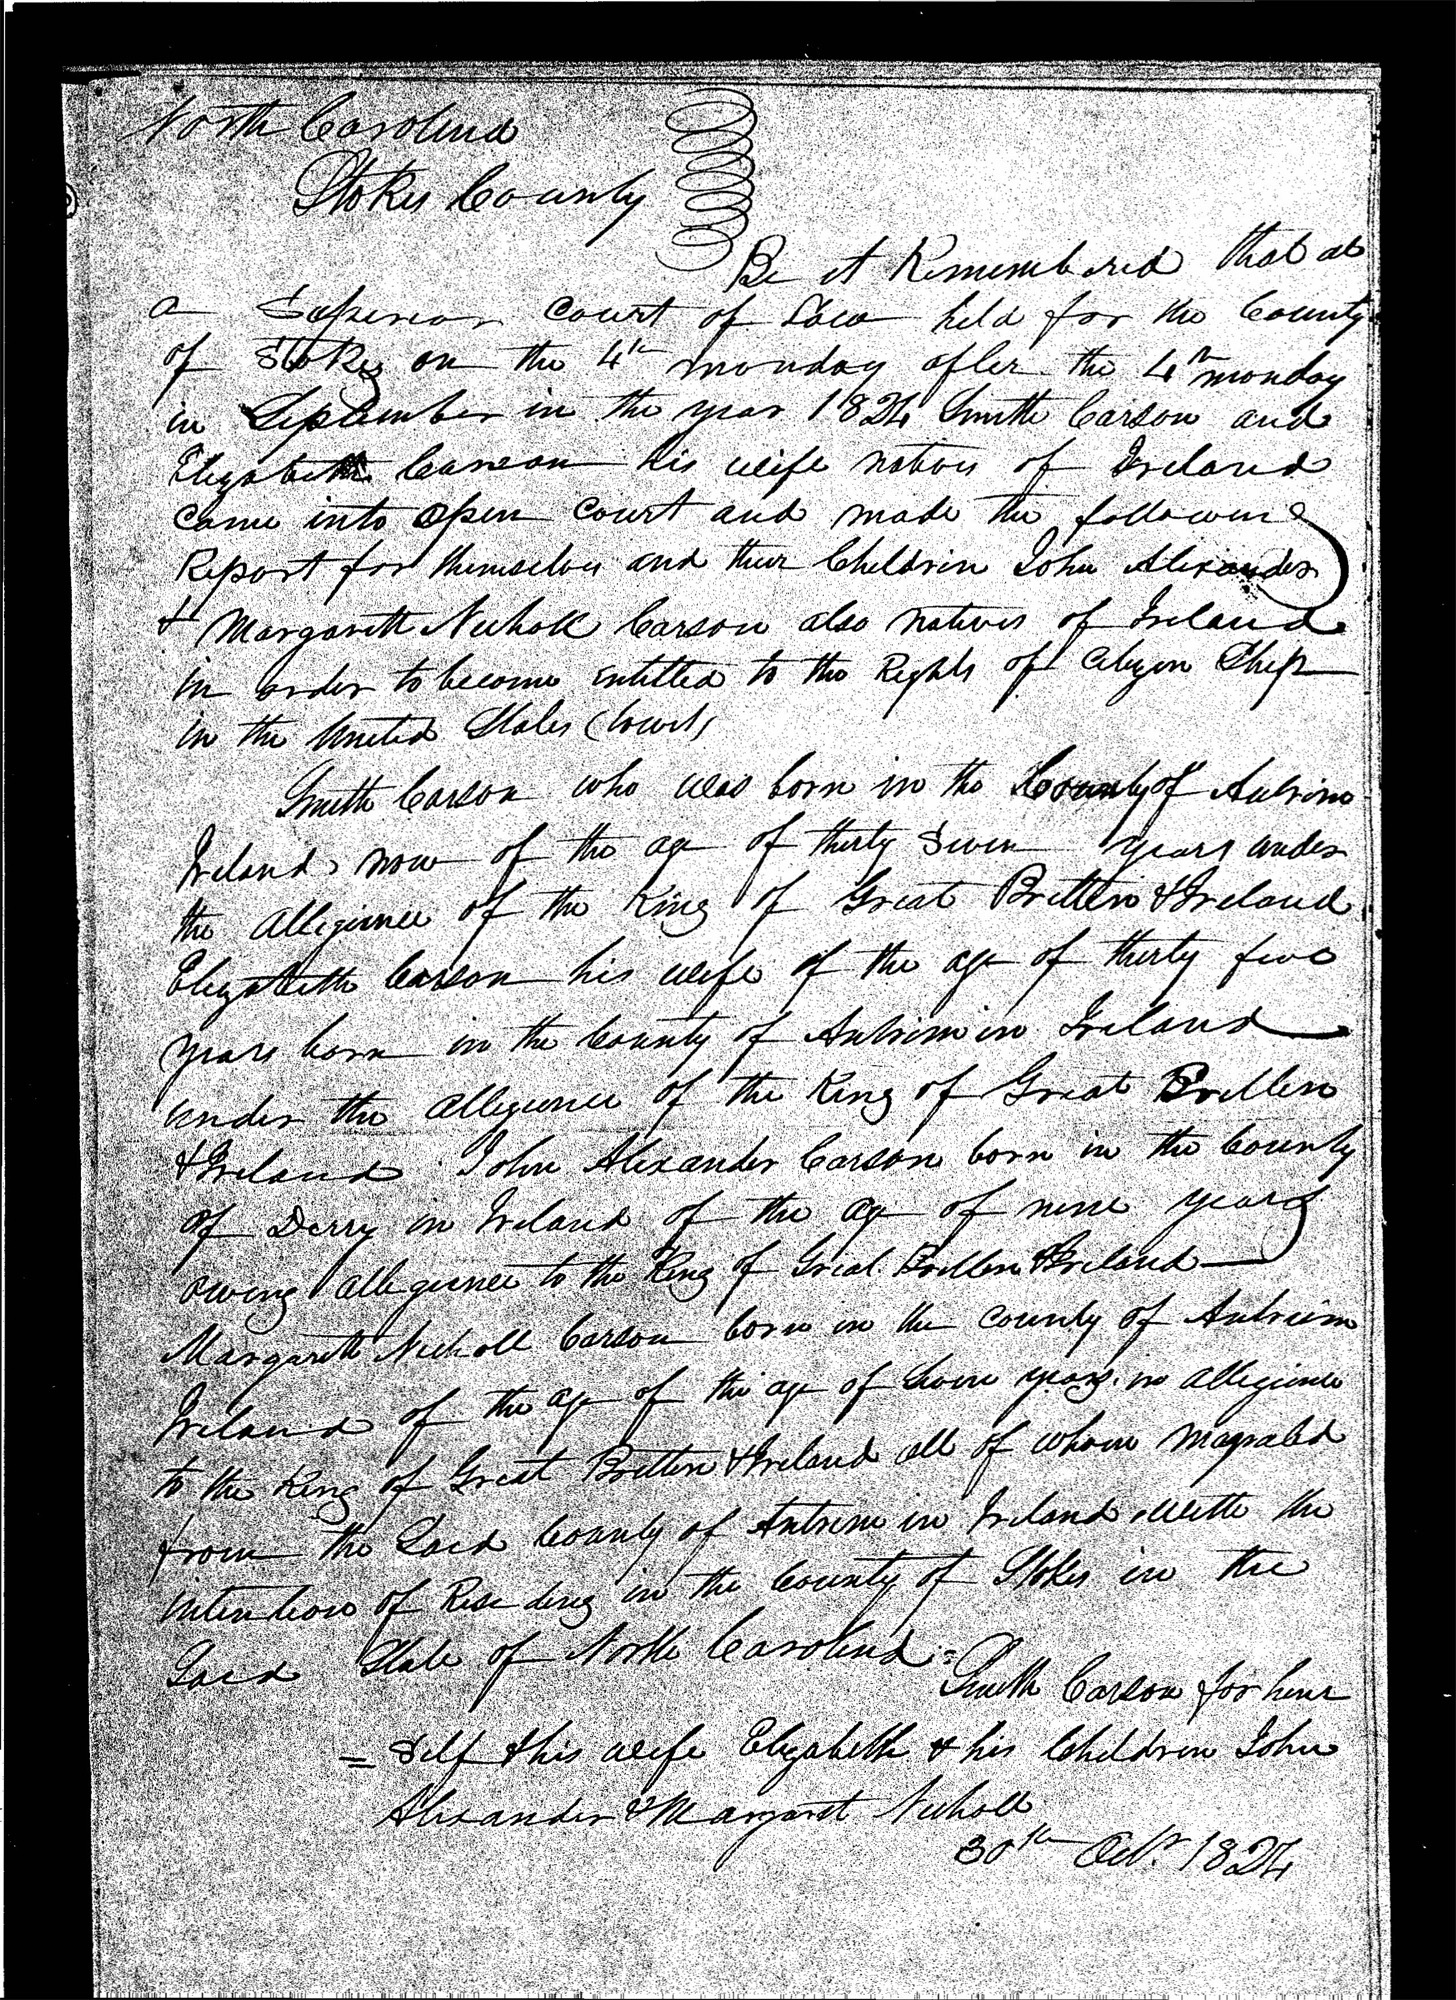 North Carolina
Stokes County
Be it Remembered that at
a Superior Court of Law held for the County
of Stokes on the 4th monday after the 4th monday
in September in the year 1824 Smith Carson and
Elizabeth Carson his wife natives of Ireland
came into open Court and made the following
Report for themselves and their Children John Alexander
& Margarett Nicholl Carson also natives of Ireland
in order to become entitled to the Rights of Citizen Ship
in the United States (towit)
Smith Carson who was born in the County of Antrim
Ireland now of the age of thirty Seven years under
the allegience of the King of Great Britten & Ireland
Elizabeth Carson his wife of the age of thirty five
years born in the County of Antrim in Ireland
under the allegience of the King of Great Britten
& Ireland John Alexander Carson born in the County
of Derry in Ireland of the age of nine years
owing allegience to the King of Great Britten & Ireland
Margarett Nicholl Carson born in the County of Antrim
Ireland of the age of the age of Seven years in allegience
to the King of Great Britten & Ireland all of whom Magrated
from the Said County of Antrim in Ireland with the
intention of Resideng in the County of Stokes in the
Said State of North Carolina
Smith Carson for him
= Self & his wife Elizabeth & his Children John
Alexander & Margaret Nicholl
30th Octr 1824